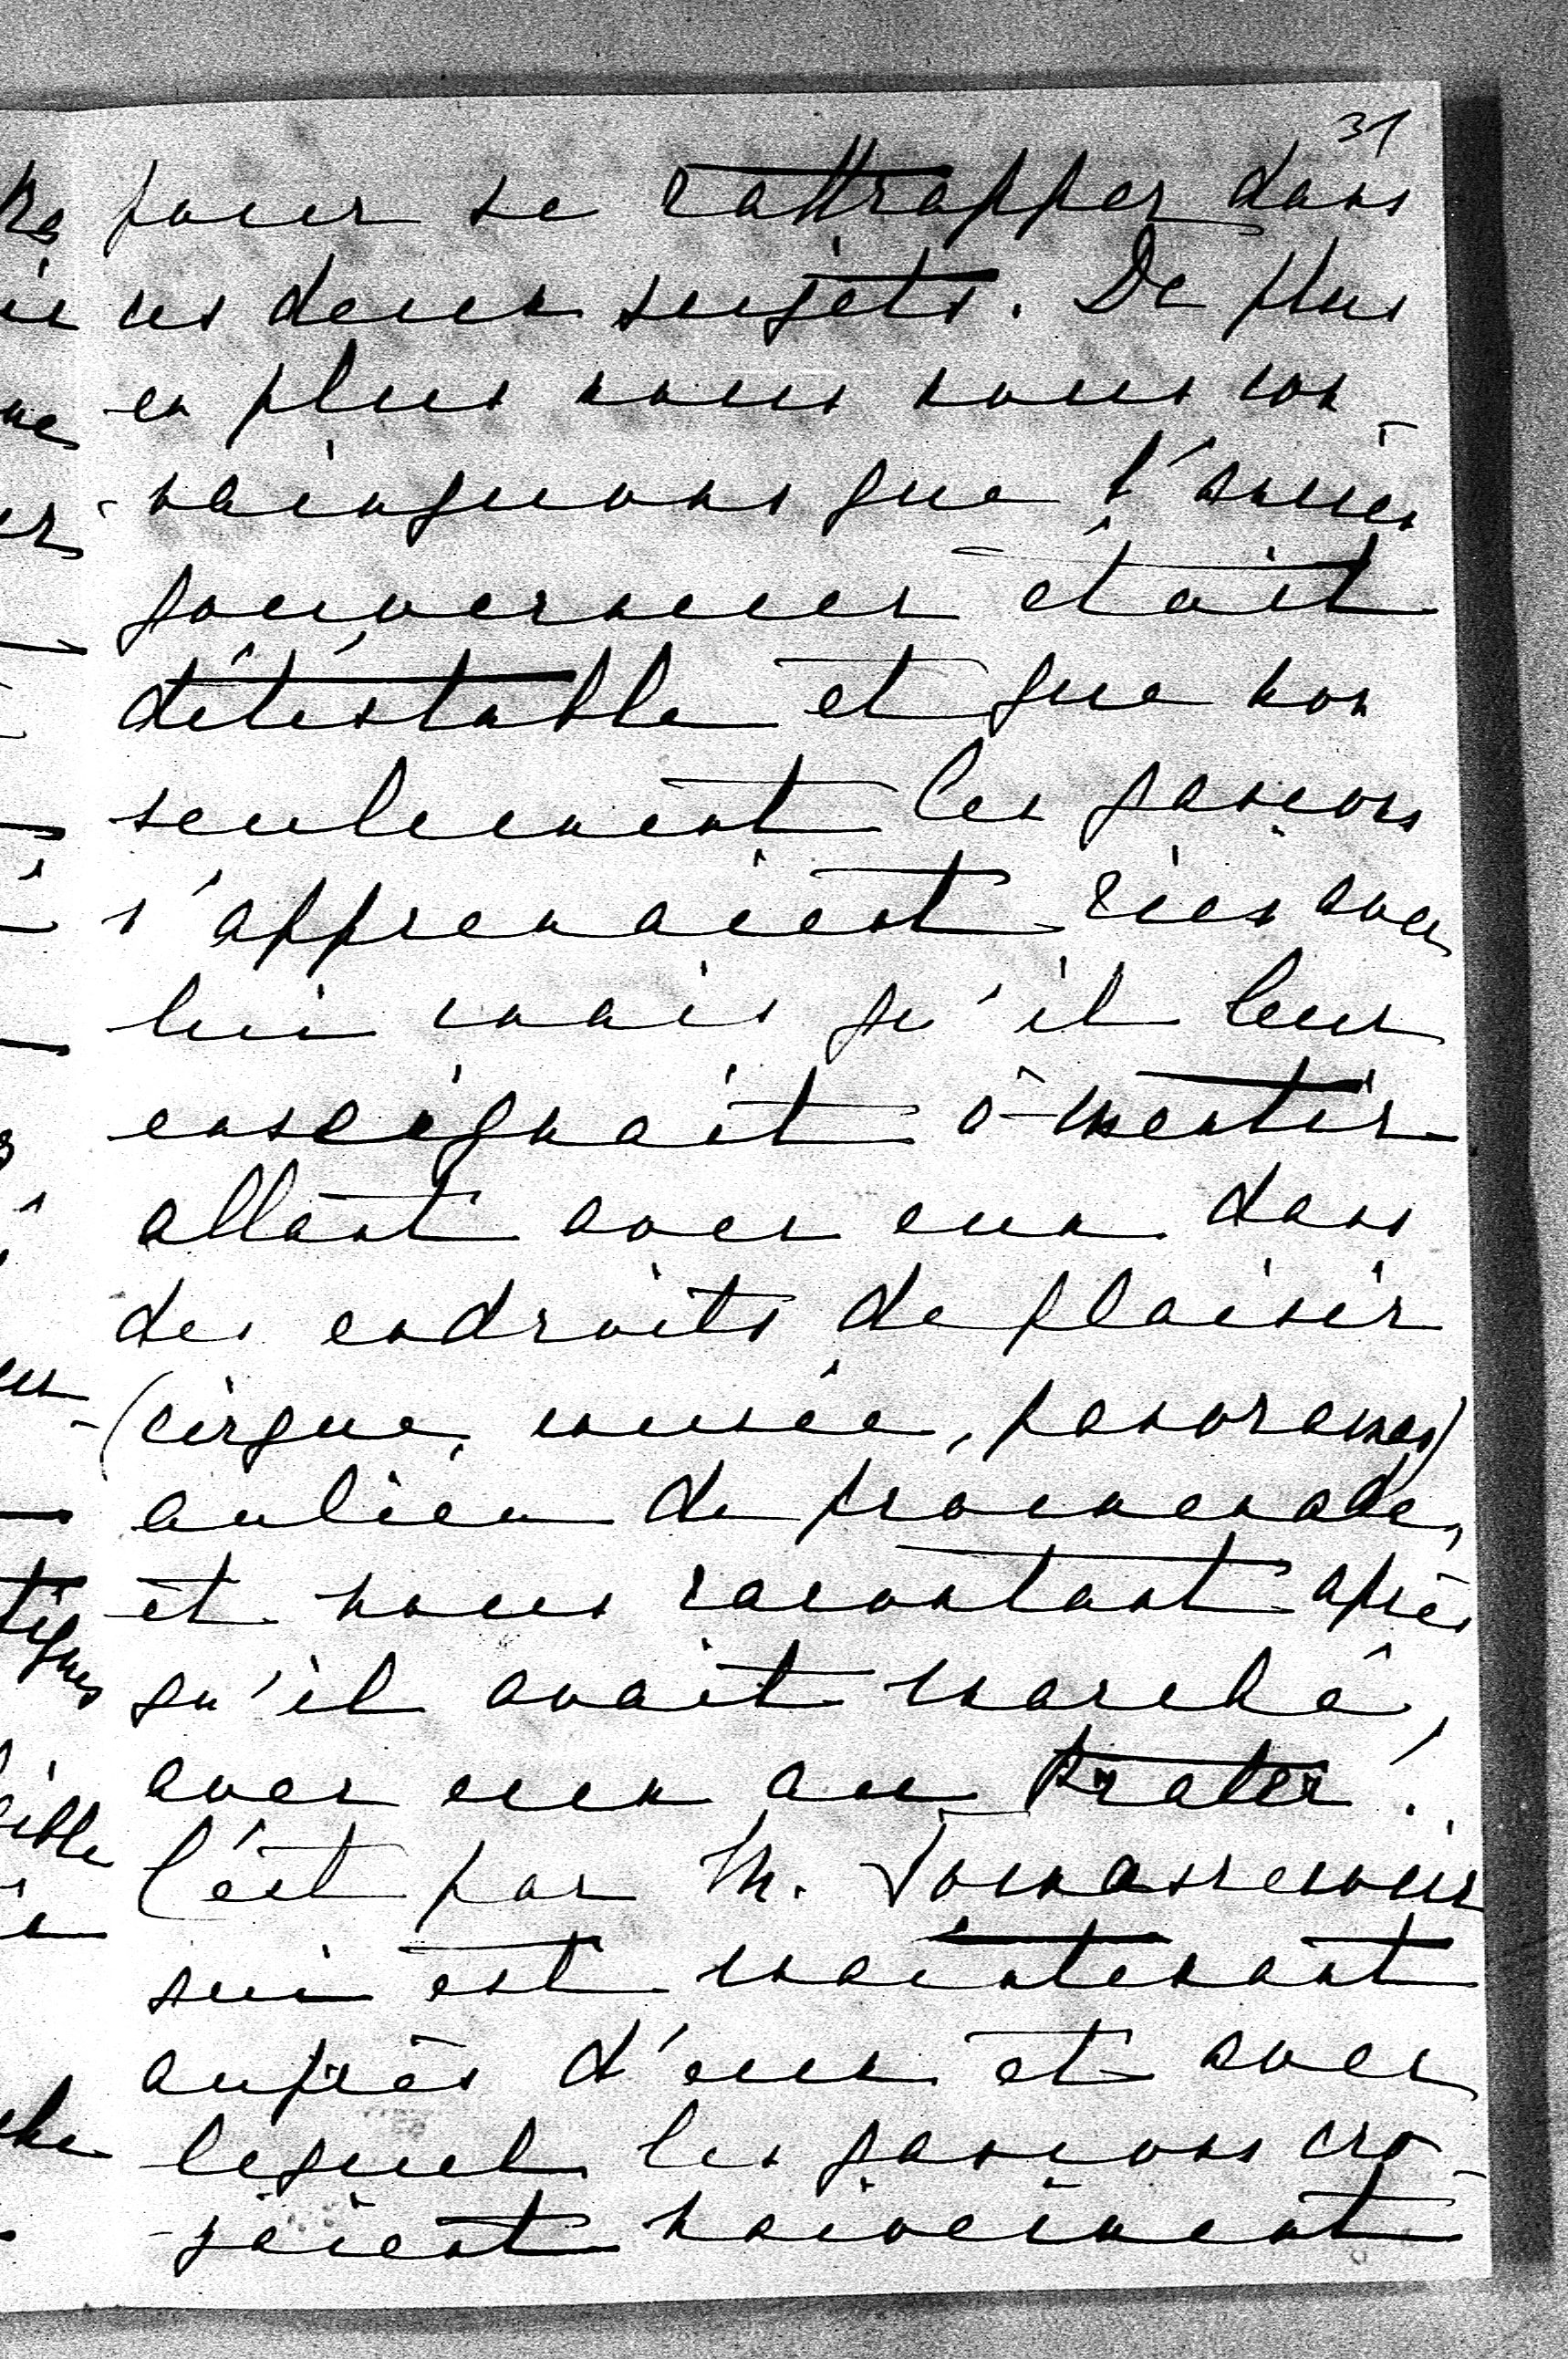 31
pour se rattrapper dans
ces deux sujets. De plus
en plus nous nous con-
-vainquons que l'ancien
gouverneur était
détéstable et que non
seulement les garçons
n'apprenaient rien avec
lui mais qu'il leur
enseignait à mentir
allant avec eux dans
des endroits de plaisir
(cirque, musée, panoramas)
aulieu de promenade,
et nous racontant après
qu'il avait marché,
avec eux au Prater!
C'est par M.
qui est maintenant
auprès d'eux et avec
lequel les garçons cro-
-yaient naivement